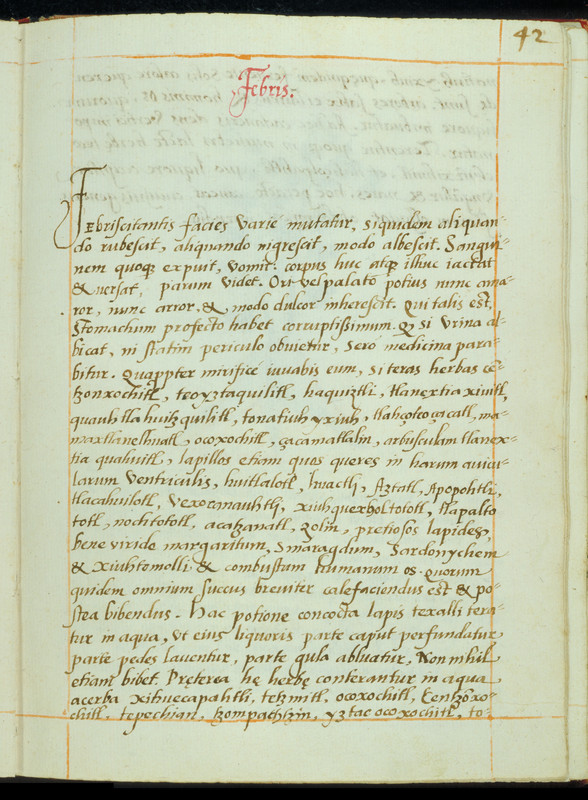 42
Febris.
Febriscitantis facies varié mutatur, siquidem aliquan-
do rubescit, aliquando nigrescit, modo albescit. Sangui-
nem quoqȝ expuit, vomit: corpus huc atqȝ illuc iactat
& versat, parum videt. Ori vel palato potius nunc ama-
ror, nunc arror, & modo dulcor inherescit. Qui talis est,
Stomachum profecto habet corruptissimum. Qȝ si vrina al-
bicat, ni statim periculo obvietur, Seró medicina para-
bitur. Quappter mirificé iuvabis eum, si teras herbas cē-
tzonxochitl, teoyztaquilitl, haquiztli, tlanextia xiuitl,
quauhtla huitzquilitl, tonatiuh yxiuh, tlahçolteoçacatl, ma-
maxtlanelhuatl, ocoxochitl, çacamatlalin, arbusculam tlanex-
tia quahuitl, lapillos etiam quos queres in harum avicu-
larum ventriculis, huitlalotl, huactli, Aztatl, Apopohtli,
tlacahuilotl, vexocanauhtli, xiuhquexholtototl, tlapalto
totl, nochtototl, acatzanatl, zolin, pretiosos lapides,
bene virido margaritum, Smaragdum, Sardonychem
& xiuhtomolli & combustum humanum os. quorum
quidem omnium succus breviter calefaciendus est & po-
stea bibendus. Hac potione concocta lapis texalli tera-
tur in aqua, vt eius liquoris parte caput perfundatur
parte pedes laventur, parte gula abluatur. Nonnihil
etiam bibet. Pręterea hę herbę conterantur in aqua
acerba xihuecapahtli, tetzmitl, ocoxochitl, Centzōxo-
chitl, tepechian, tzompachtzin, yztac ocoxochitl, to-